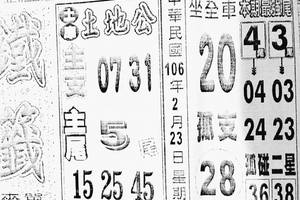 鐵籤
土地公
主支
07 31
主尾
5尾
15 25 45
中華民國106年2月23日星期
坐全車
20
孤支
28
本期最旺尾
4尾 3尾
04 03
24 23
孤碰二星
36 38